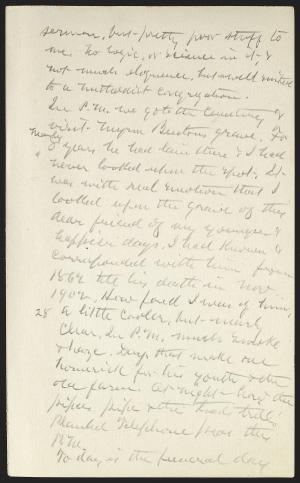 sermon, but pretty poor stuff to
me. No logic, or science in it, &
not much eloquence, but well suited
to a methodist congregation.
In P.M. we go to the Cemetery &
visit Myron Bentons grave. For
nearly
8 years he had lain there & I had
never looked upon the spot. It
was with real emotion that I
looked upon the grave of this
dear friend of my younger &
happier days. I had known &
corresponded with him from
1862 till his death in Nov.
1902. How fond I was of him,
28 a little cooler, but nearly
clear. In P.M. much smoke
& haze. Days that make one
homesick for his youth & the
old farm. At night how the
pipers pipe & the toads trill!
Planted telephone peas this
P.M.
To day is the funeral day